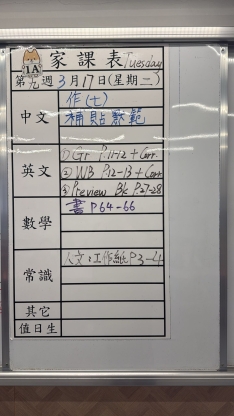 1A
家課表 Tuesday
第九週 3月17日(星期二)
中文
作(七)
補貼默範
英文
① Gr P.11-12 + Corr.
② WB P.12-13 + Corr.
③ Preview Bk P.27-28
數學
書 P64-66
常識
人文:工作紙P3-4
其它
值日生